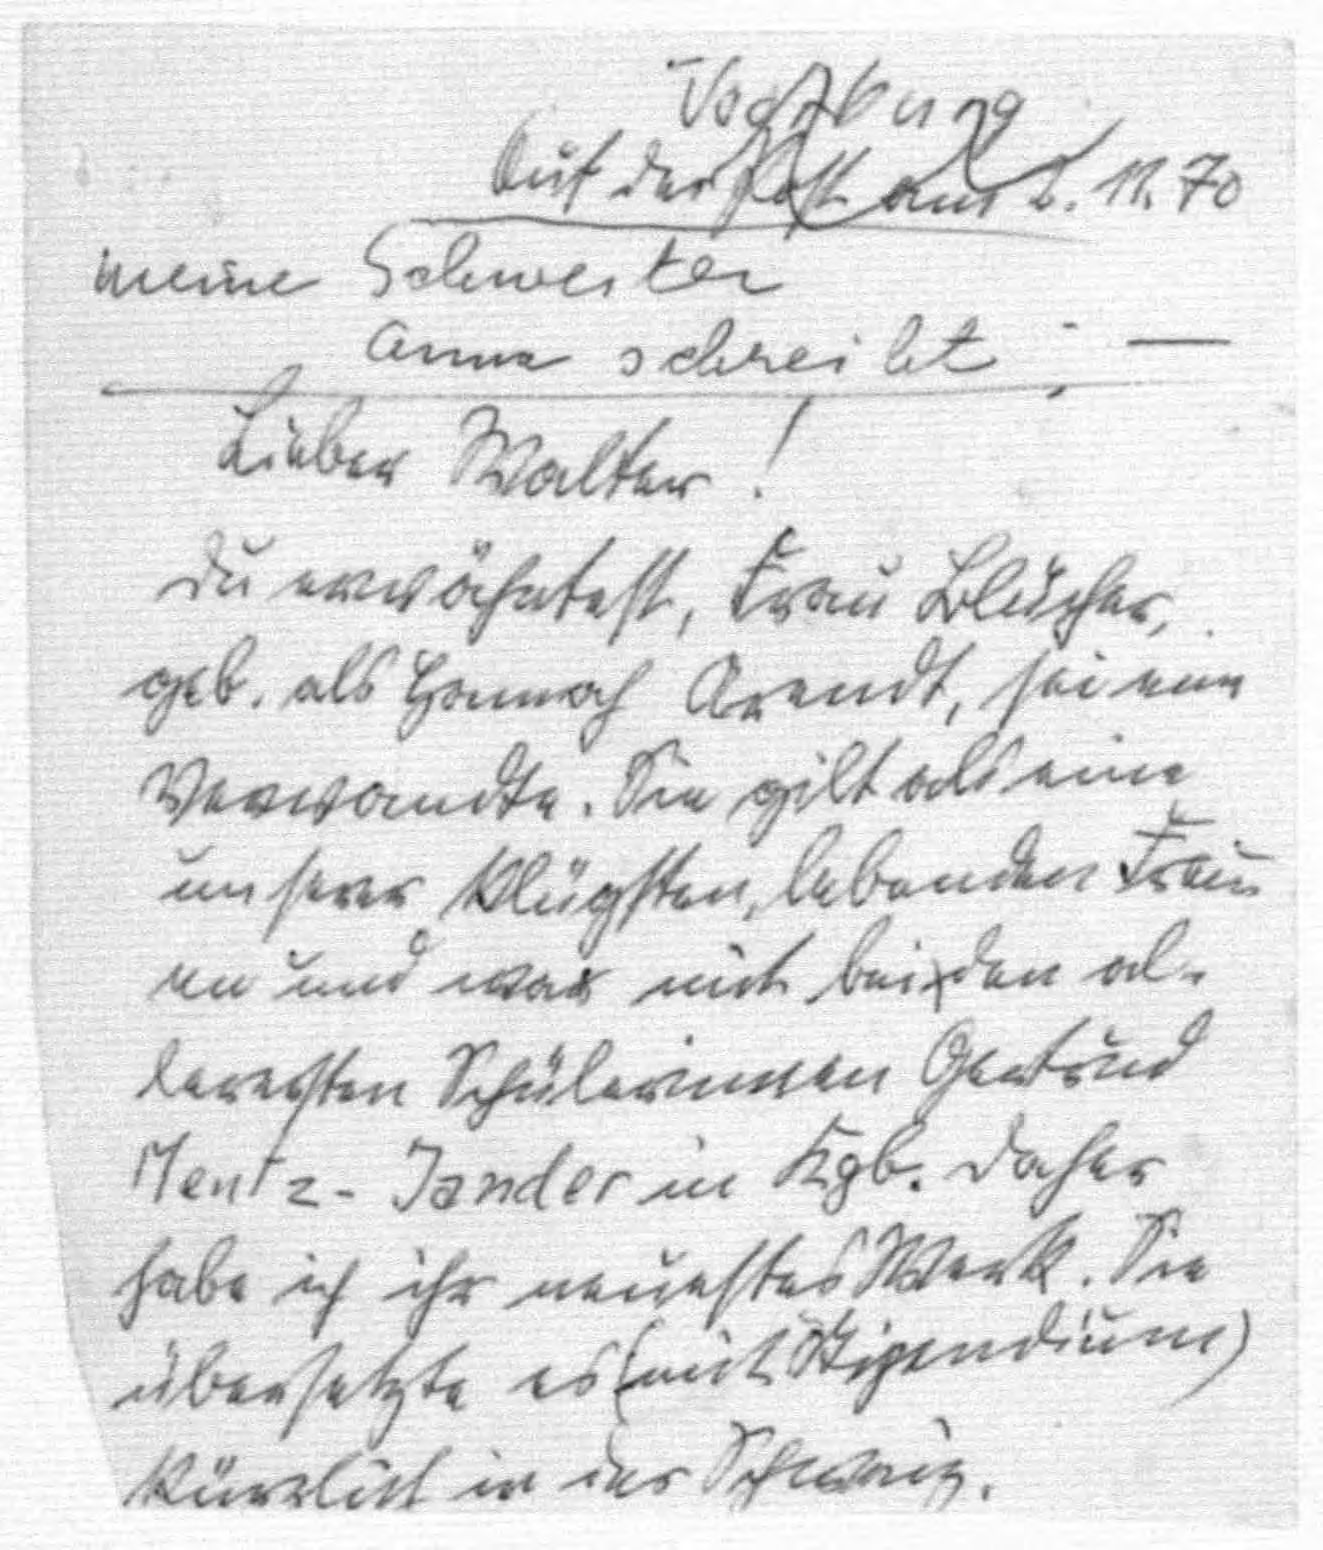 Vogtsburg
Auf der Post am 2. 11. 70
meine Schwester
Anna schreibt: —
Lieber Walter!
Du erwähntest, Frau Blücher,
geb. als Hannah Arendt, sei eine
Verwandte. Sie gilt als eine
unserer klügsten, lebenden Frau
en und war mit bei den al-
lerersten Schülerinnen Gertrud
Mentz-Jander in Kgb. Daher
habe ich ihr neuestes Werk. Sie
übersetzte es (mit Stipendium)
kürzlich in der Schweiz.